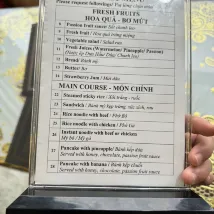 Please request followings! / Vui lòng chọn món
FRESH FRUITS
HOA QUẢ - BƠ MỨT
Passion fruit sauce
Fresh fruit / Hoa quả tráng miệng
Vegetable salad / Salad rau
Fresh Juices (Watermelon/ Pineapple/ Passion)
Bread/ Bánh mỳ
Butter/ Bơ
Strawberry Jam / Mứt dâu
MAIN COURSE - MÓN CHÍNH
Steamed sticky rice / Xôi trắng - ruốc
Sandwich / Bánh mỳ kẹp trứng, xúc xích,
Rice noodle with beef / Phở Bò
Rice noodle with chicken / Phở Gà
Instant noodle with beef or chicken
Mỳ Bò / Mỳ Gà
Pancake with pineapple/ Bánh kếp dứa
Served with honey, chocolate, passion fruit sauce
Pancake with banana / Bánh kếp chuối
Served with honey, chocolate, passion fruit sauce